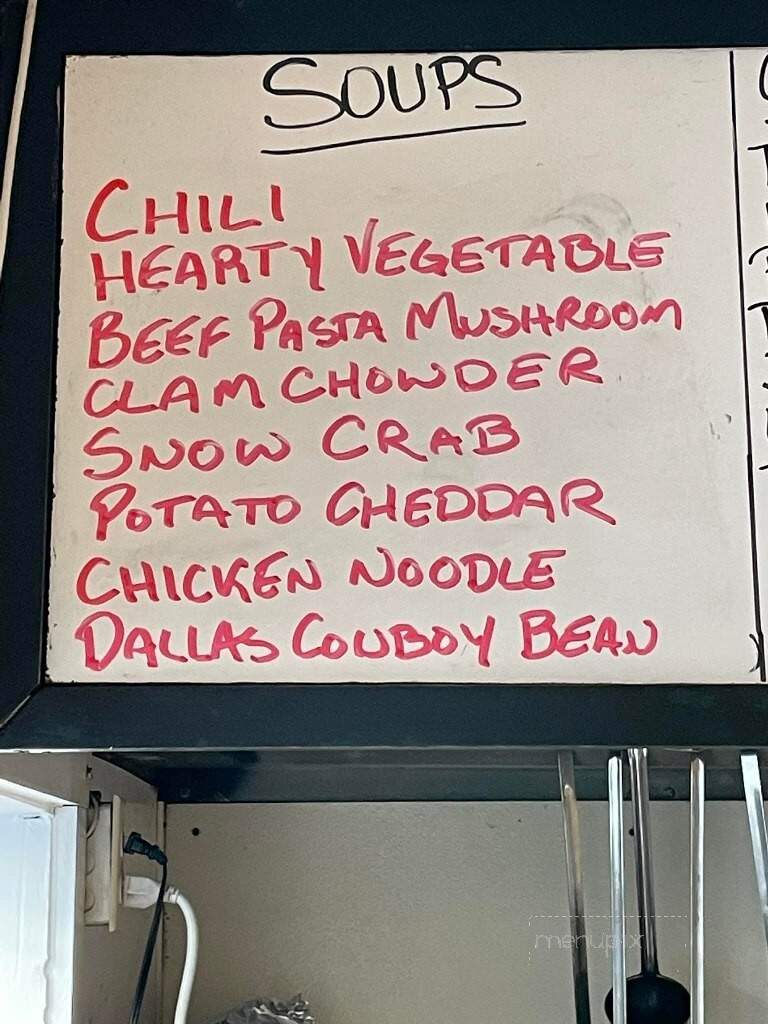 SOUPS
CHILI
HEARTY VEGETABLE
BEEF PASTA MUSHROOM
CLAM CHOWDER
SNOW CRAB
POTATO CHEDDAR
CHICKEN NOODLE
DALLAS COWBOY BEAN
menupix